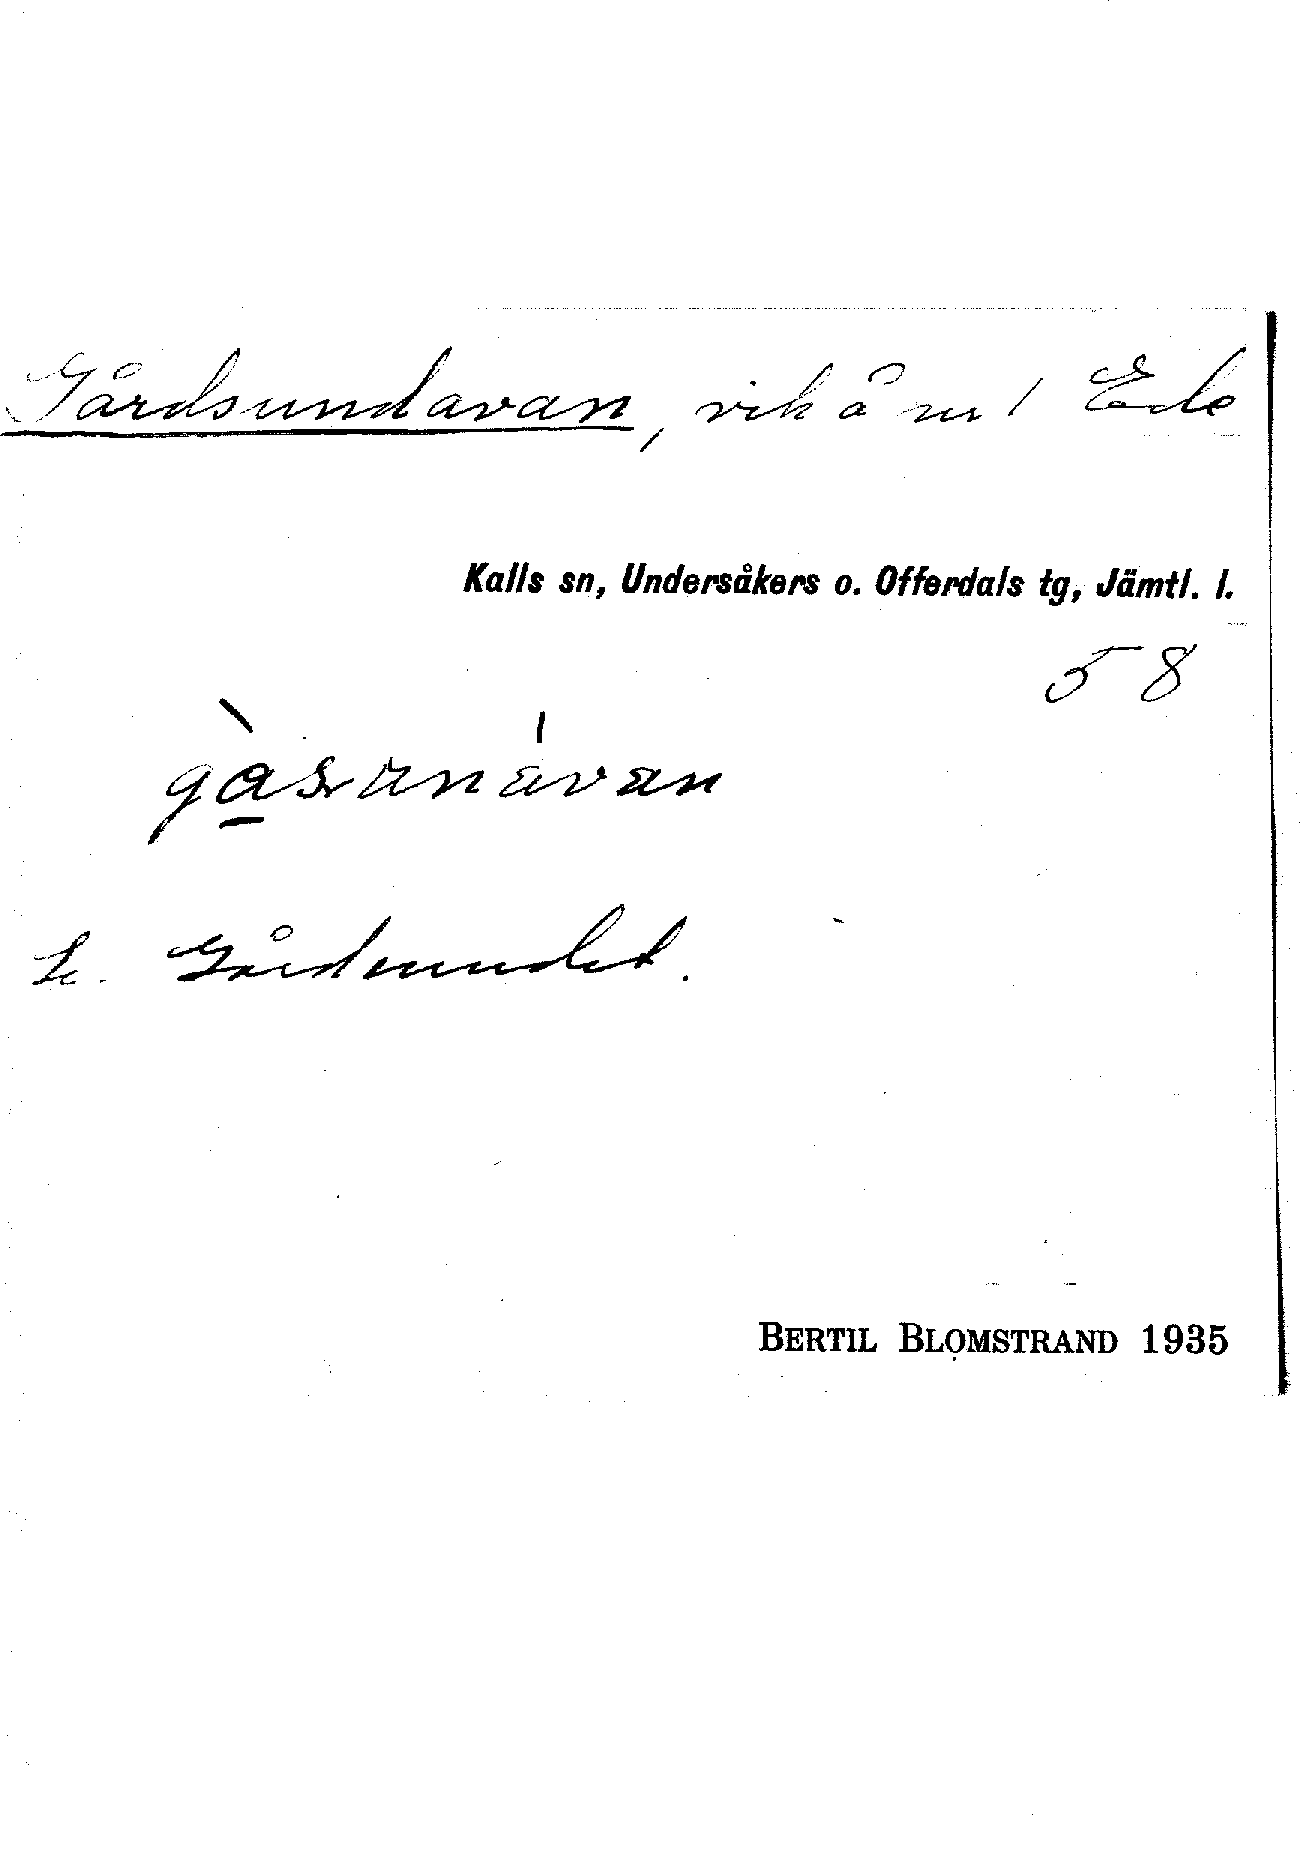 Gårdsundavan, vik å nr 1 Ede
Kalls sn, Undersåkers o. Offerdals tg, Jämtl. l.
58
Gårdsundet.
BERTIL BLOMSTRAND 1935